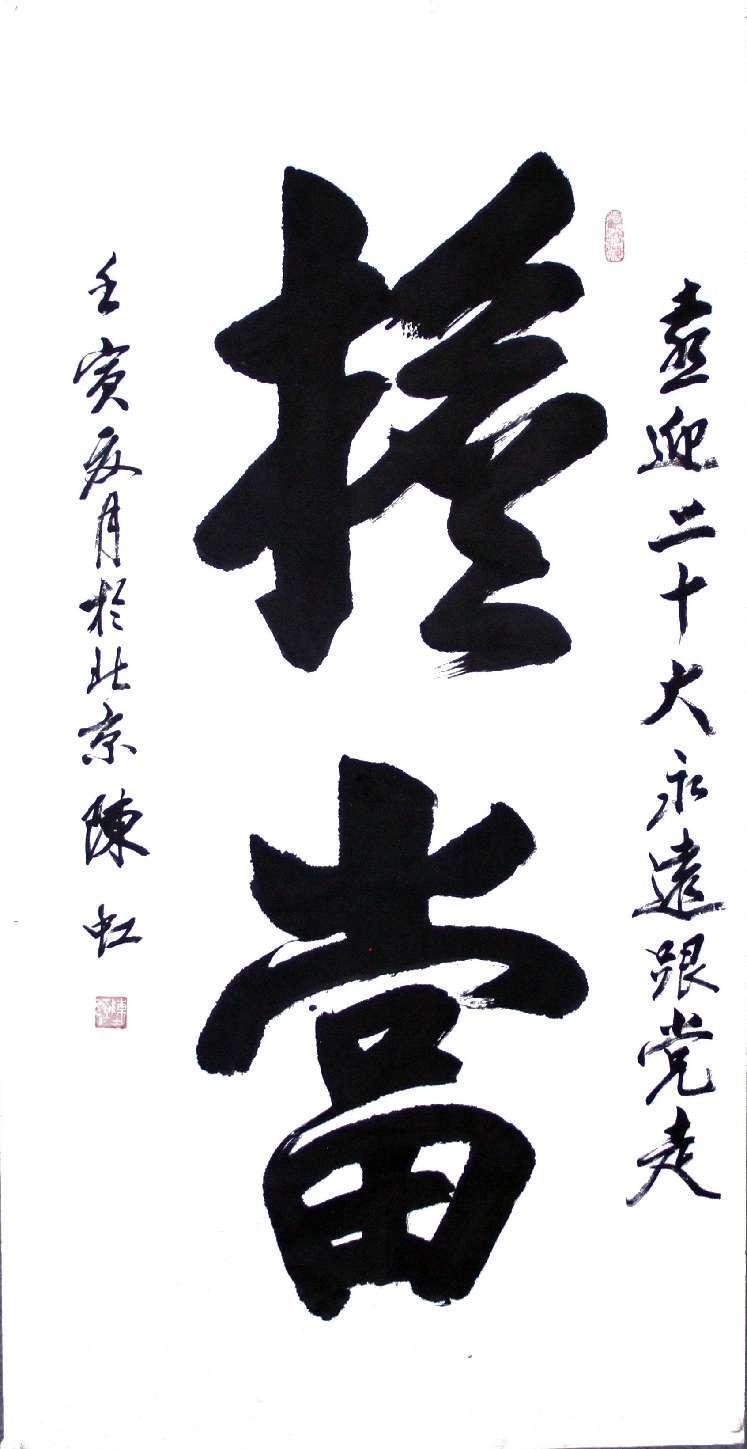 喜迎二十大永遠跟党走
擔當
壬寅夏月於北京陳虹